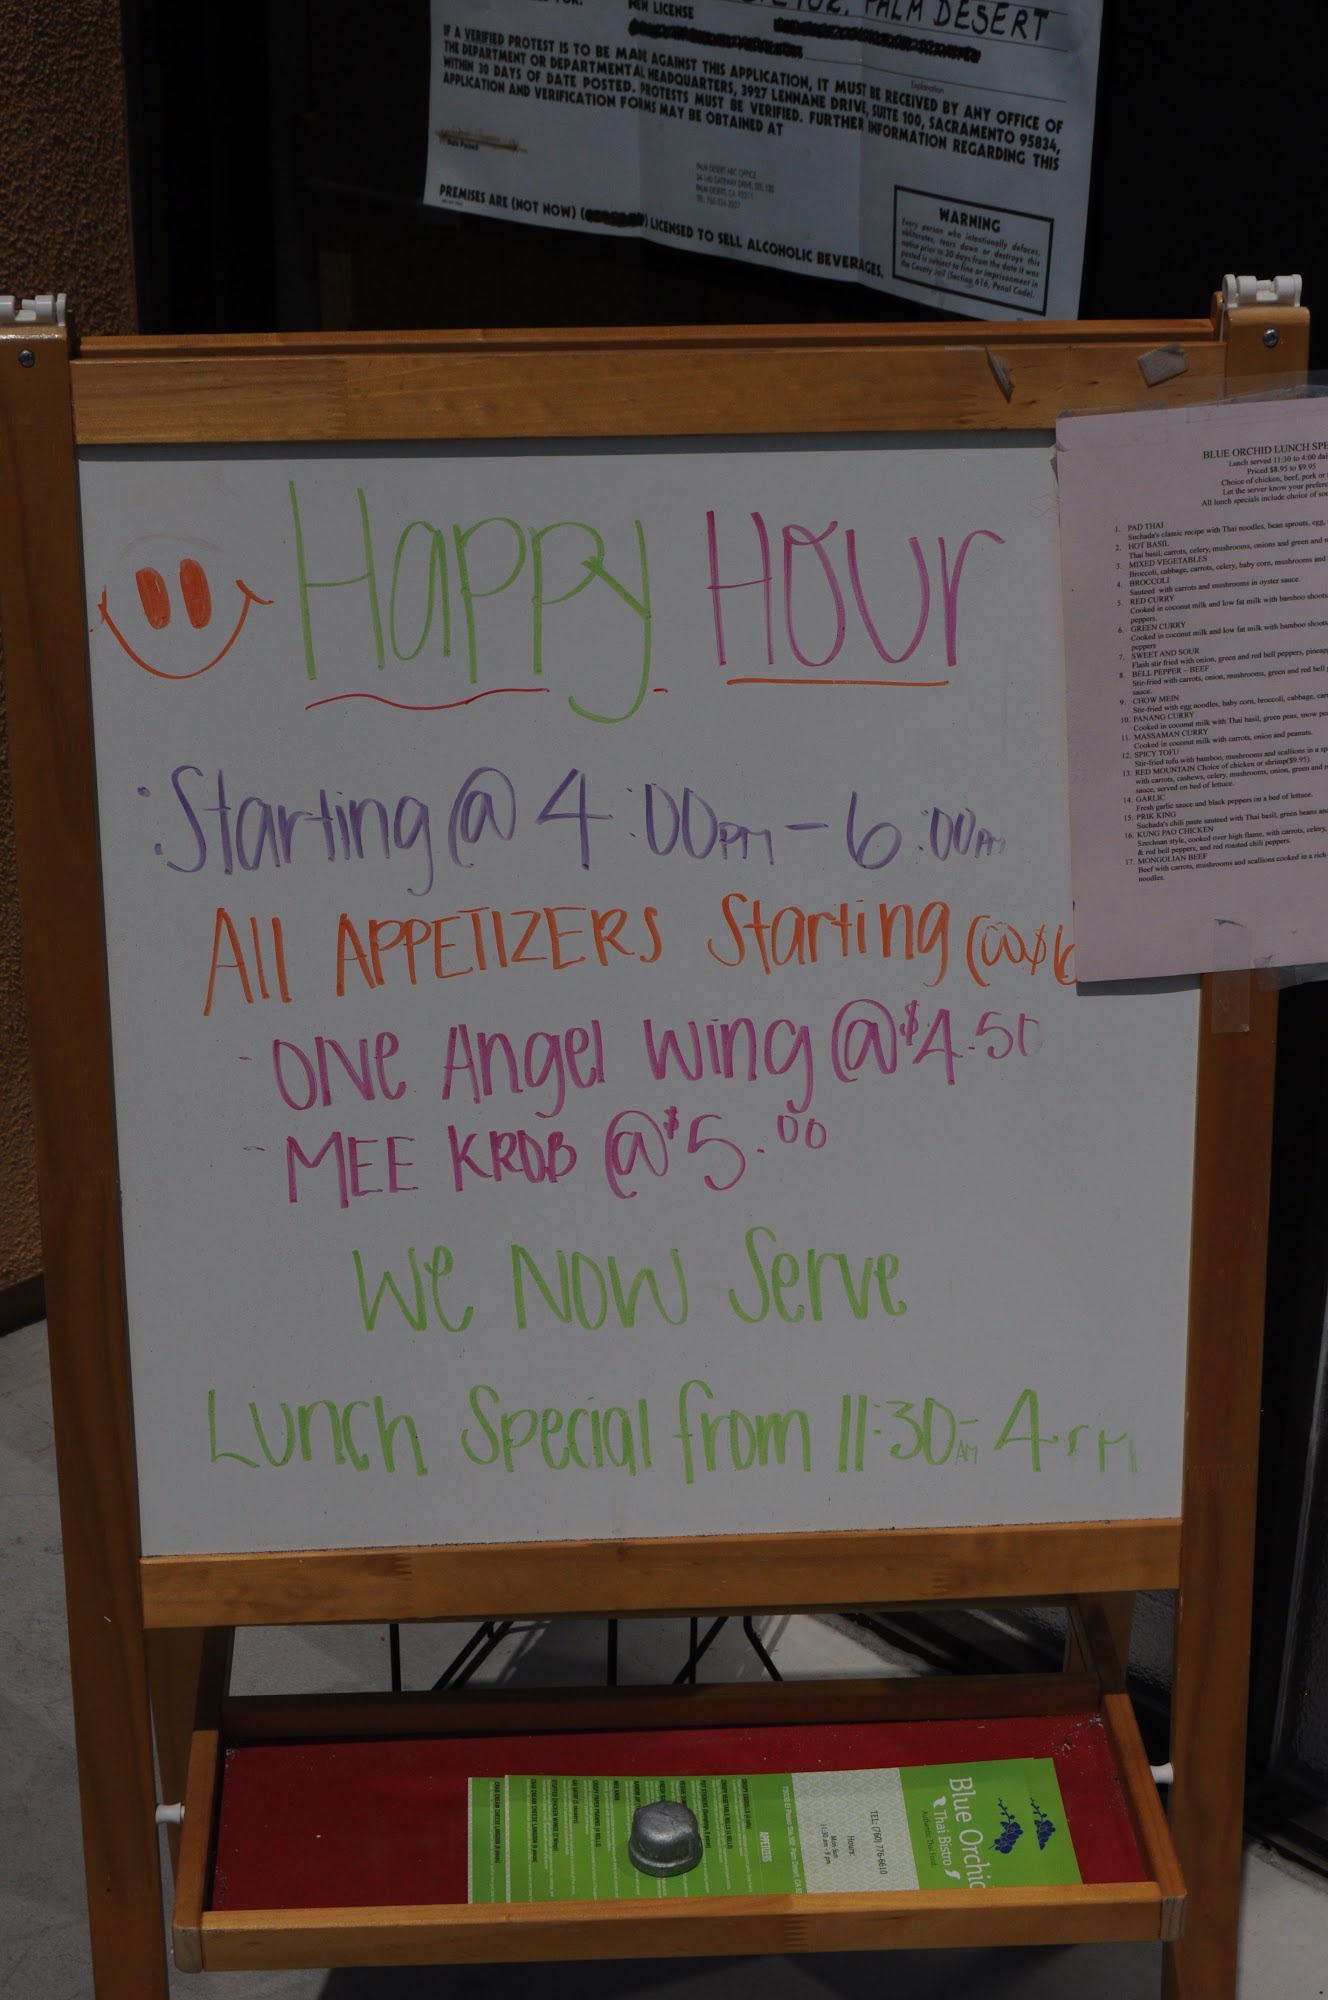 PALM DESERT
LICENSE
IF A VERIFIED PROTEST IS TO BE MADE AGAINST THIS APPLICATION, IT MUST BE RECEIVED BY ANY OFFICE OF
THE DEPARTMENT OR DEPARTMENTAL HEADQUARTERS, 3927 LENNANE DRIVE, SUITE 100, SACRAMENTO 95834,
WITHIN 30 DAYS OF DATE POSTED. PROTESTS MUST BE VERIFIED. FURTHER INFORMATION REGARDING THIS
APPLICATION AND VERIFICATION FORMS MAY BE OBTAINED AT
Date Posted
PALM DESERT ABC OFFICE
PREMISES ARE (NOT NOW) ( ) LICENSED TO SELL ALCOHOLIC BEVERAGES.
WARNING
Every person who intentionally defaces,
obliterates, tears down or destroys this
notice prior to 30 days from the date it was
posted is subject to fine or imprisonment in
the County Jail (Section 616, Penal Code).
Happy Hour
Starting @ 4:00PM - 6:00PM
All APPETIZERS Starting @ $6
- ONE Angel Wing @ $4.50
- MEE KROB @ $5.00
We NOW Serve
Lunch Special from 11:30AM - 4PM
BLUE ORCHID LUNCH SPE
Lunch served 11:30 to 4:00 dai
Priced $8.95 to $9.95
Choice of chicken, beef, pork or
Let the server know your prefere
All lunch specials include choice of so
1. PAD THAI
Suchada's classic recipe with Thai noodles, bean sprouts, egg,
2. HOT BASIL
Thai basil, carrots, celery, mushrooms, onions and green and r
3. MIXED VEGETABLES
Broccoli, cabbage, carrots, celery, baby corn, mushrooms and
4. BROCCOLI
Sauteed with carrots and mushrooms in oyster sauce.
5. RED CURRY
Cooked in coconut milk and low fat milk with bamboo shoots
peppers.
6. GREEN CURRY
Cooked in coconut milk and low fat milk with bamboo shoots
peppers
7. SWEET AND SOUR
Flash stir fried with onion, green and red bell peppers, pineap
8. BELL PEPPER - BEEF
Stir-fried with carrots, onion, mushrooms, green and red bell
sauce.
9. CHOW MEIN
Stir-fried with egg noodles, baby corn, broccoli, cabbage, car
10. PANANG CURRY
Cooked in coconut milk with Thai basil, green peas, snow pe
11. MASSAMAN CURRY
Cooked in coconut milk with carrots, onion and peanuts.
12. SPICY TOFU
Stir-fried tofu with bamboo, mushrooms and scallions in a sp
13. RED MOUNTAIN Choice of chicken or shrimp($9.95).
with carrots, cashews, celery, mushrooms, onion, green and r
sauce, served on bed of lettuce.
14. GARLIC
Fresh garlic sauce and black peppers on a bed of lettuce.
15. PRIK KING
Suchada's chili paste sauteed with Thai basil, green beans and
16. KUNG PAO CHICKEN
Szechuan style, cooked over high flame, with carrots, celery,
& red bell peppers, and red roasted chili peppers.
17. MONGOLIAN BEEF
Beef with carrots, mushrooms and scallions cooked in a rich
noodles.
Blue Orchid
Thai Bistro
Authentic Thai Food
TEL: (760) 776-6610
Hours:
Mon-Sun
11:30 am - 9 pm
APPETIZERS